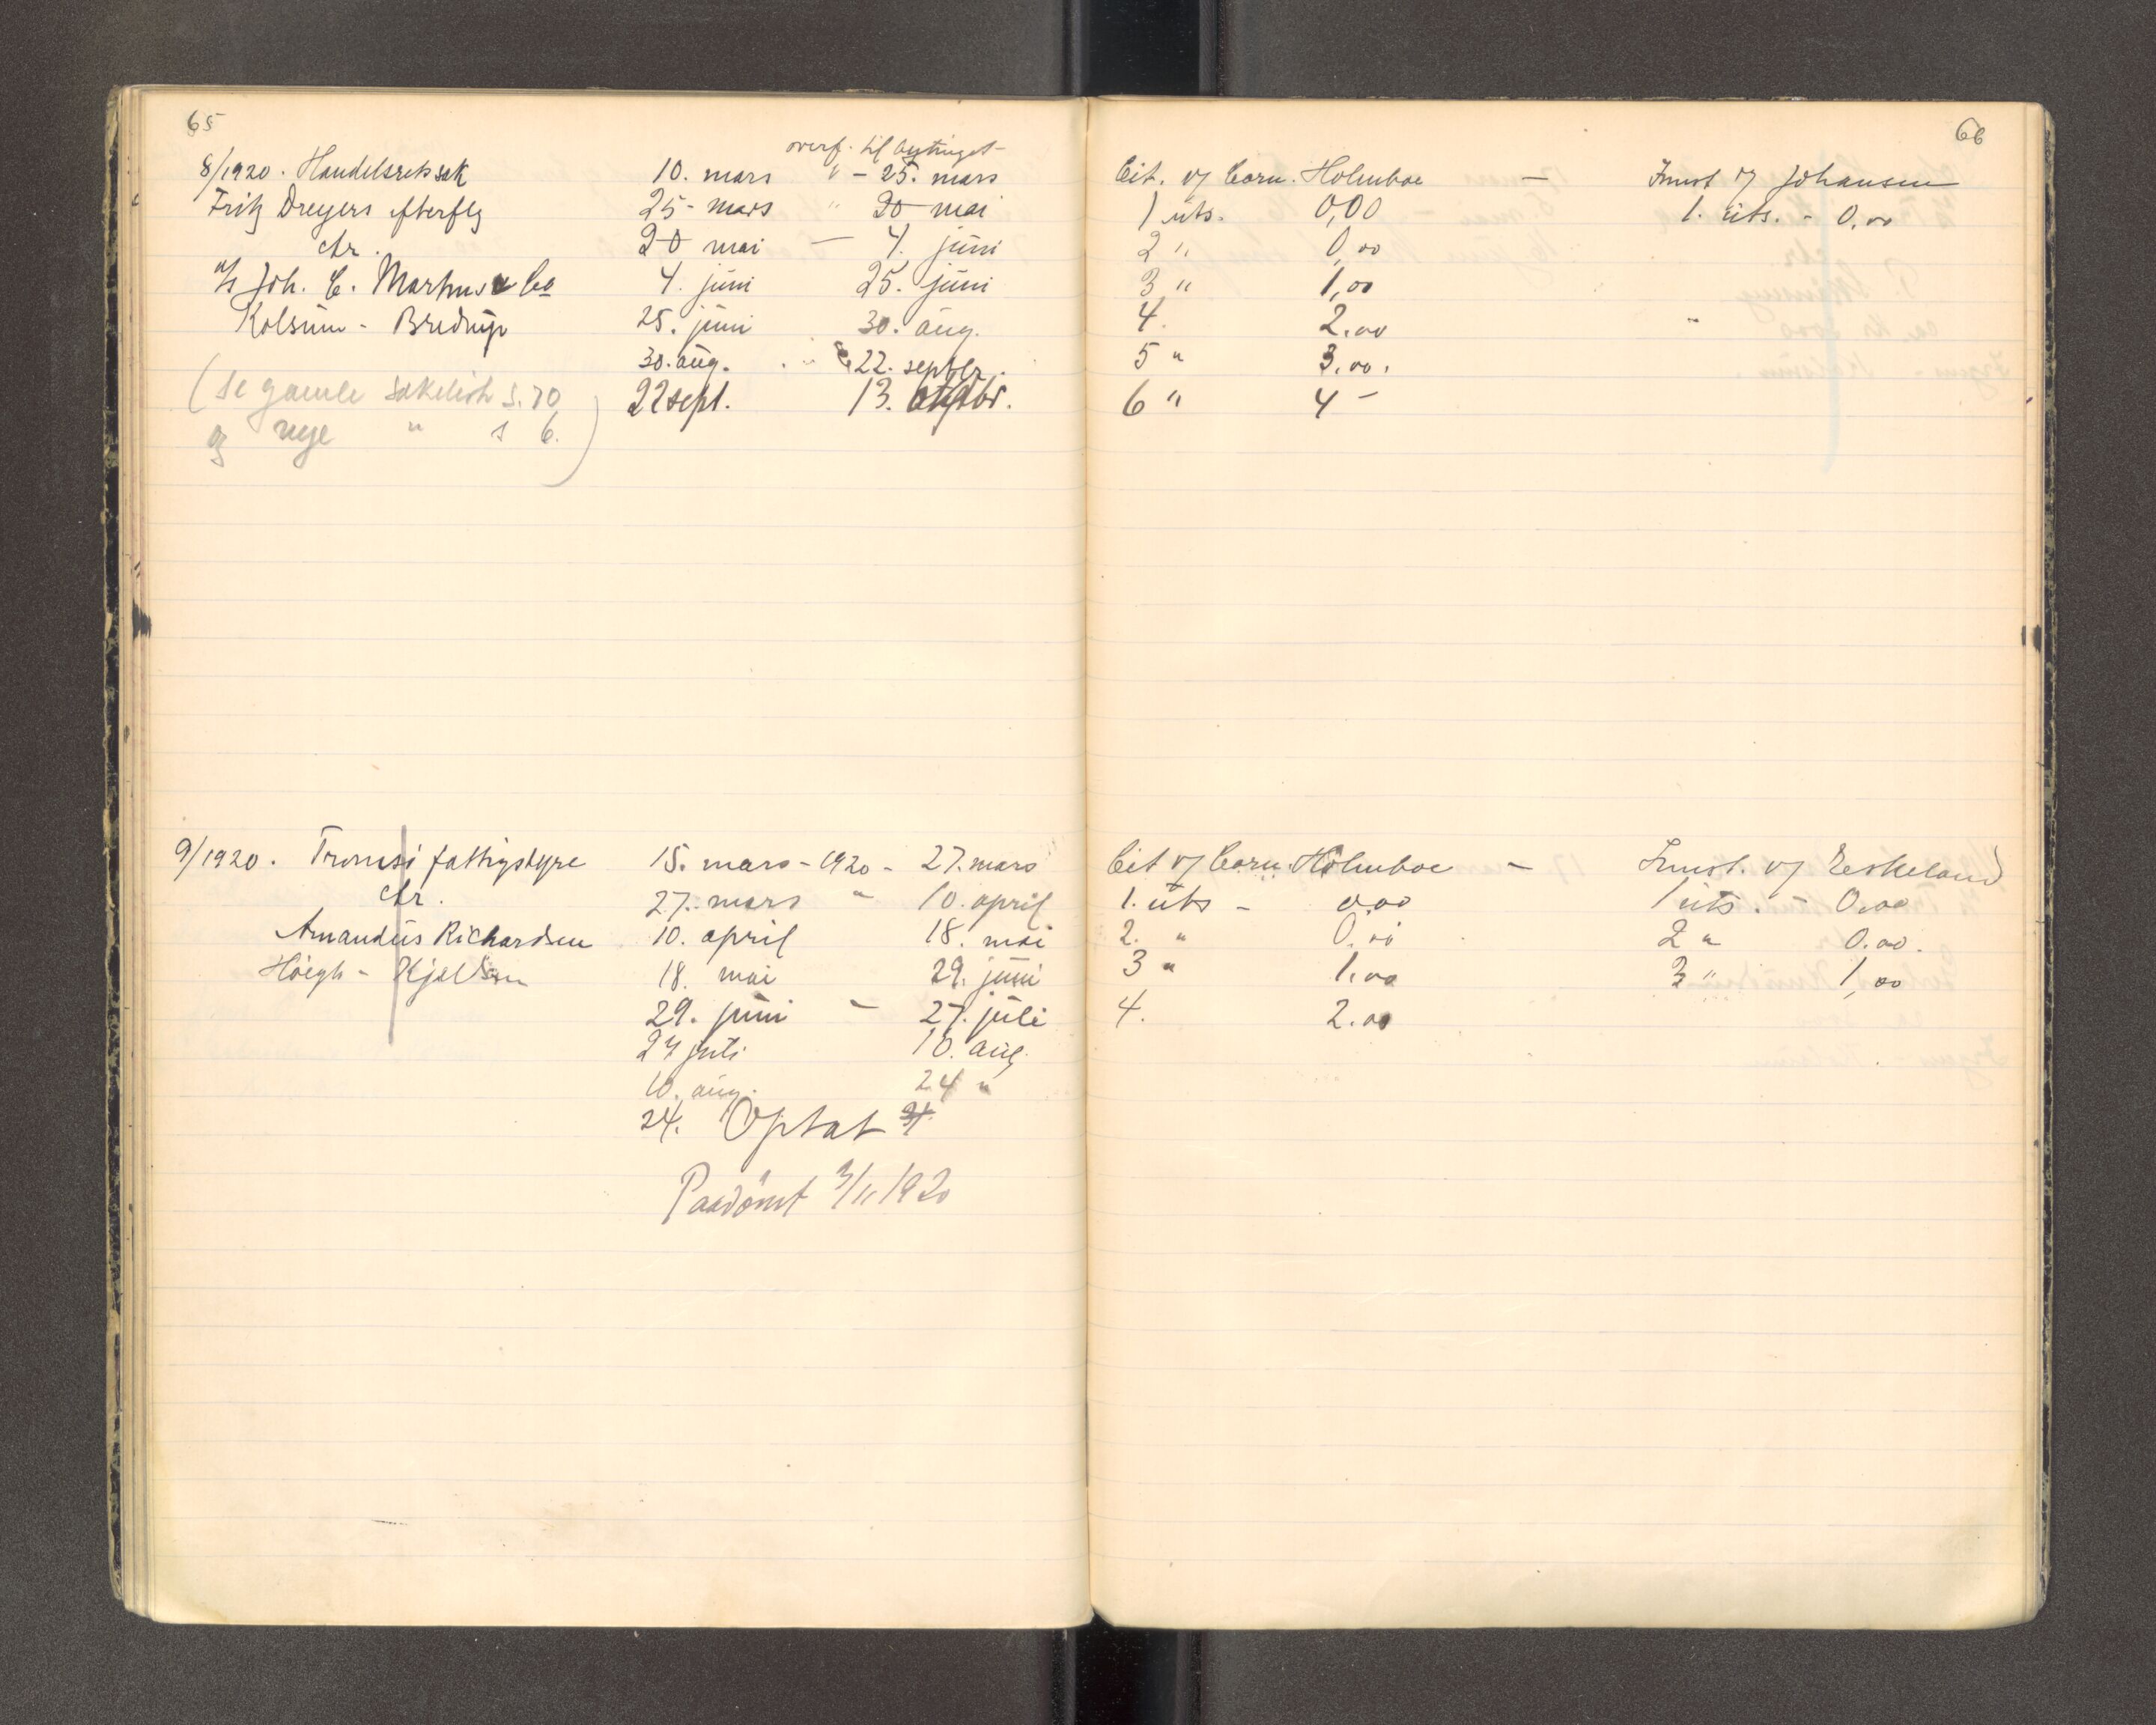 65
overf. til bytinget
8/1920. Handelsretssak 10. mars " - 25. mars
Fritz Dreyers efterflg 25- mars " 20 mai
ctr. 20 mai — 4. juni
a/s Joh. C. Martinus & Co 4. juni 25. juni
Kolsum - Bredrup 25. juni 30. aug.
30. aug. 22. septbr.
(se gamle sakeliste s. 70 22 sept. 13. oktobr.
og nye " s 6.)
9/1920. Tromsø fattigstyre 15. mars - 1920 - 27. mars
ctr. 27. mars " 10. april
Amandus Richardsen 10. april 18. mai
Høegh - Kjeldsen 18. mai 29. juni
29. juni — 27. juli
27 juli 10. aug.
10. aug. 24 "
24. Optat
Paadømt 3/11 1920
66
Cit. v/ Corn. Holmboe — Innst v/ Johansen
1 uts. 0,00 1. uts. - 0,00
2 " 0,00
3 " 1,00
4. 2.00
5 " 3.00.
6 " 4 -
Cit v/ Corn. Holmboe — Innst. v/ Eskeland
1. uts - 0,00 1 uts. - 0.00
2. " 0.00 2 " 0.00.
3 " 1.00 3 " 1,00
4. 2.00